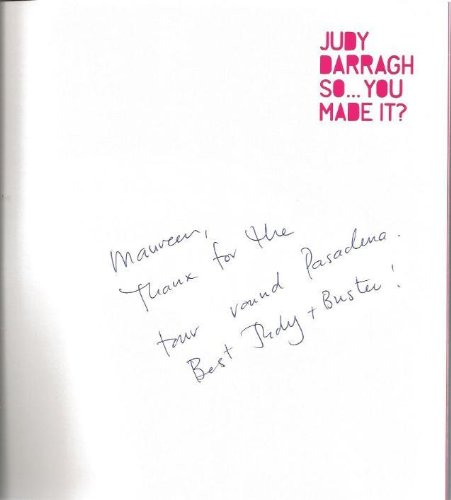 JUDY
DARRAGH
SO...YOU
MADE IT?
Maureen,
Thanx for the
tour round Pasadena.
Best Judy + Buster!